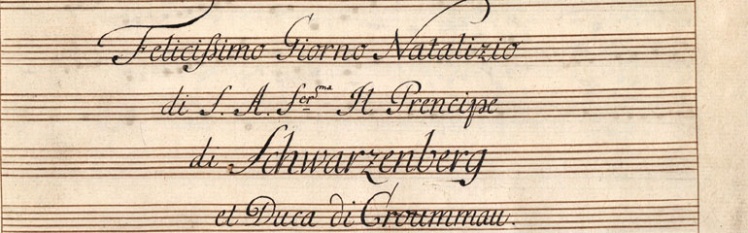 Felicißimo Giorno Natalizio
di S. A. Ser:ma Il Prencipe
di Schwarzenberg
et Duca di Croummau.